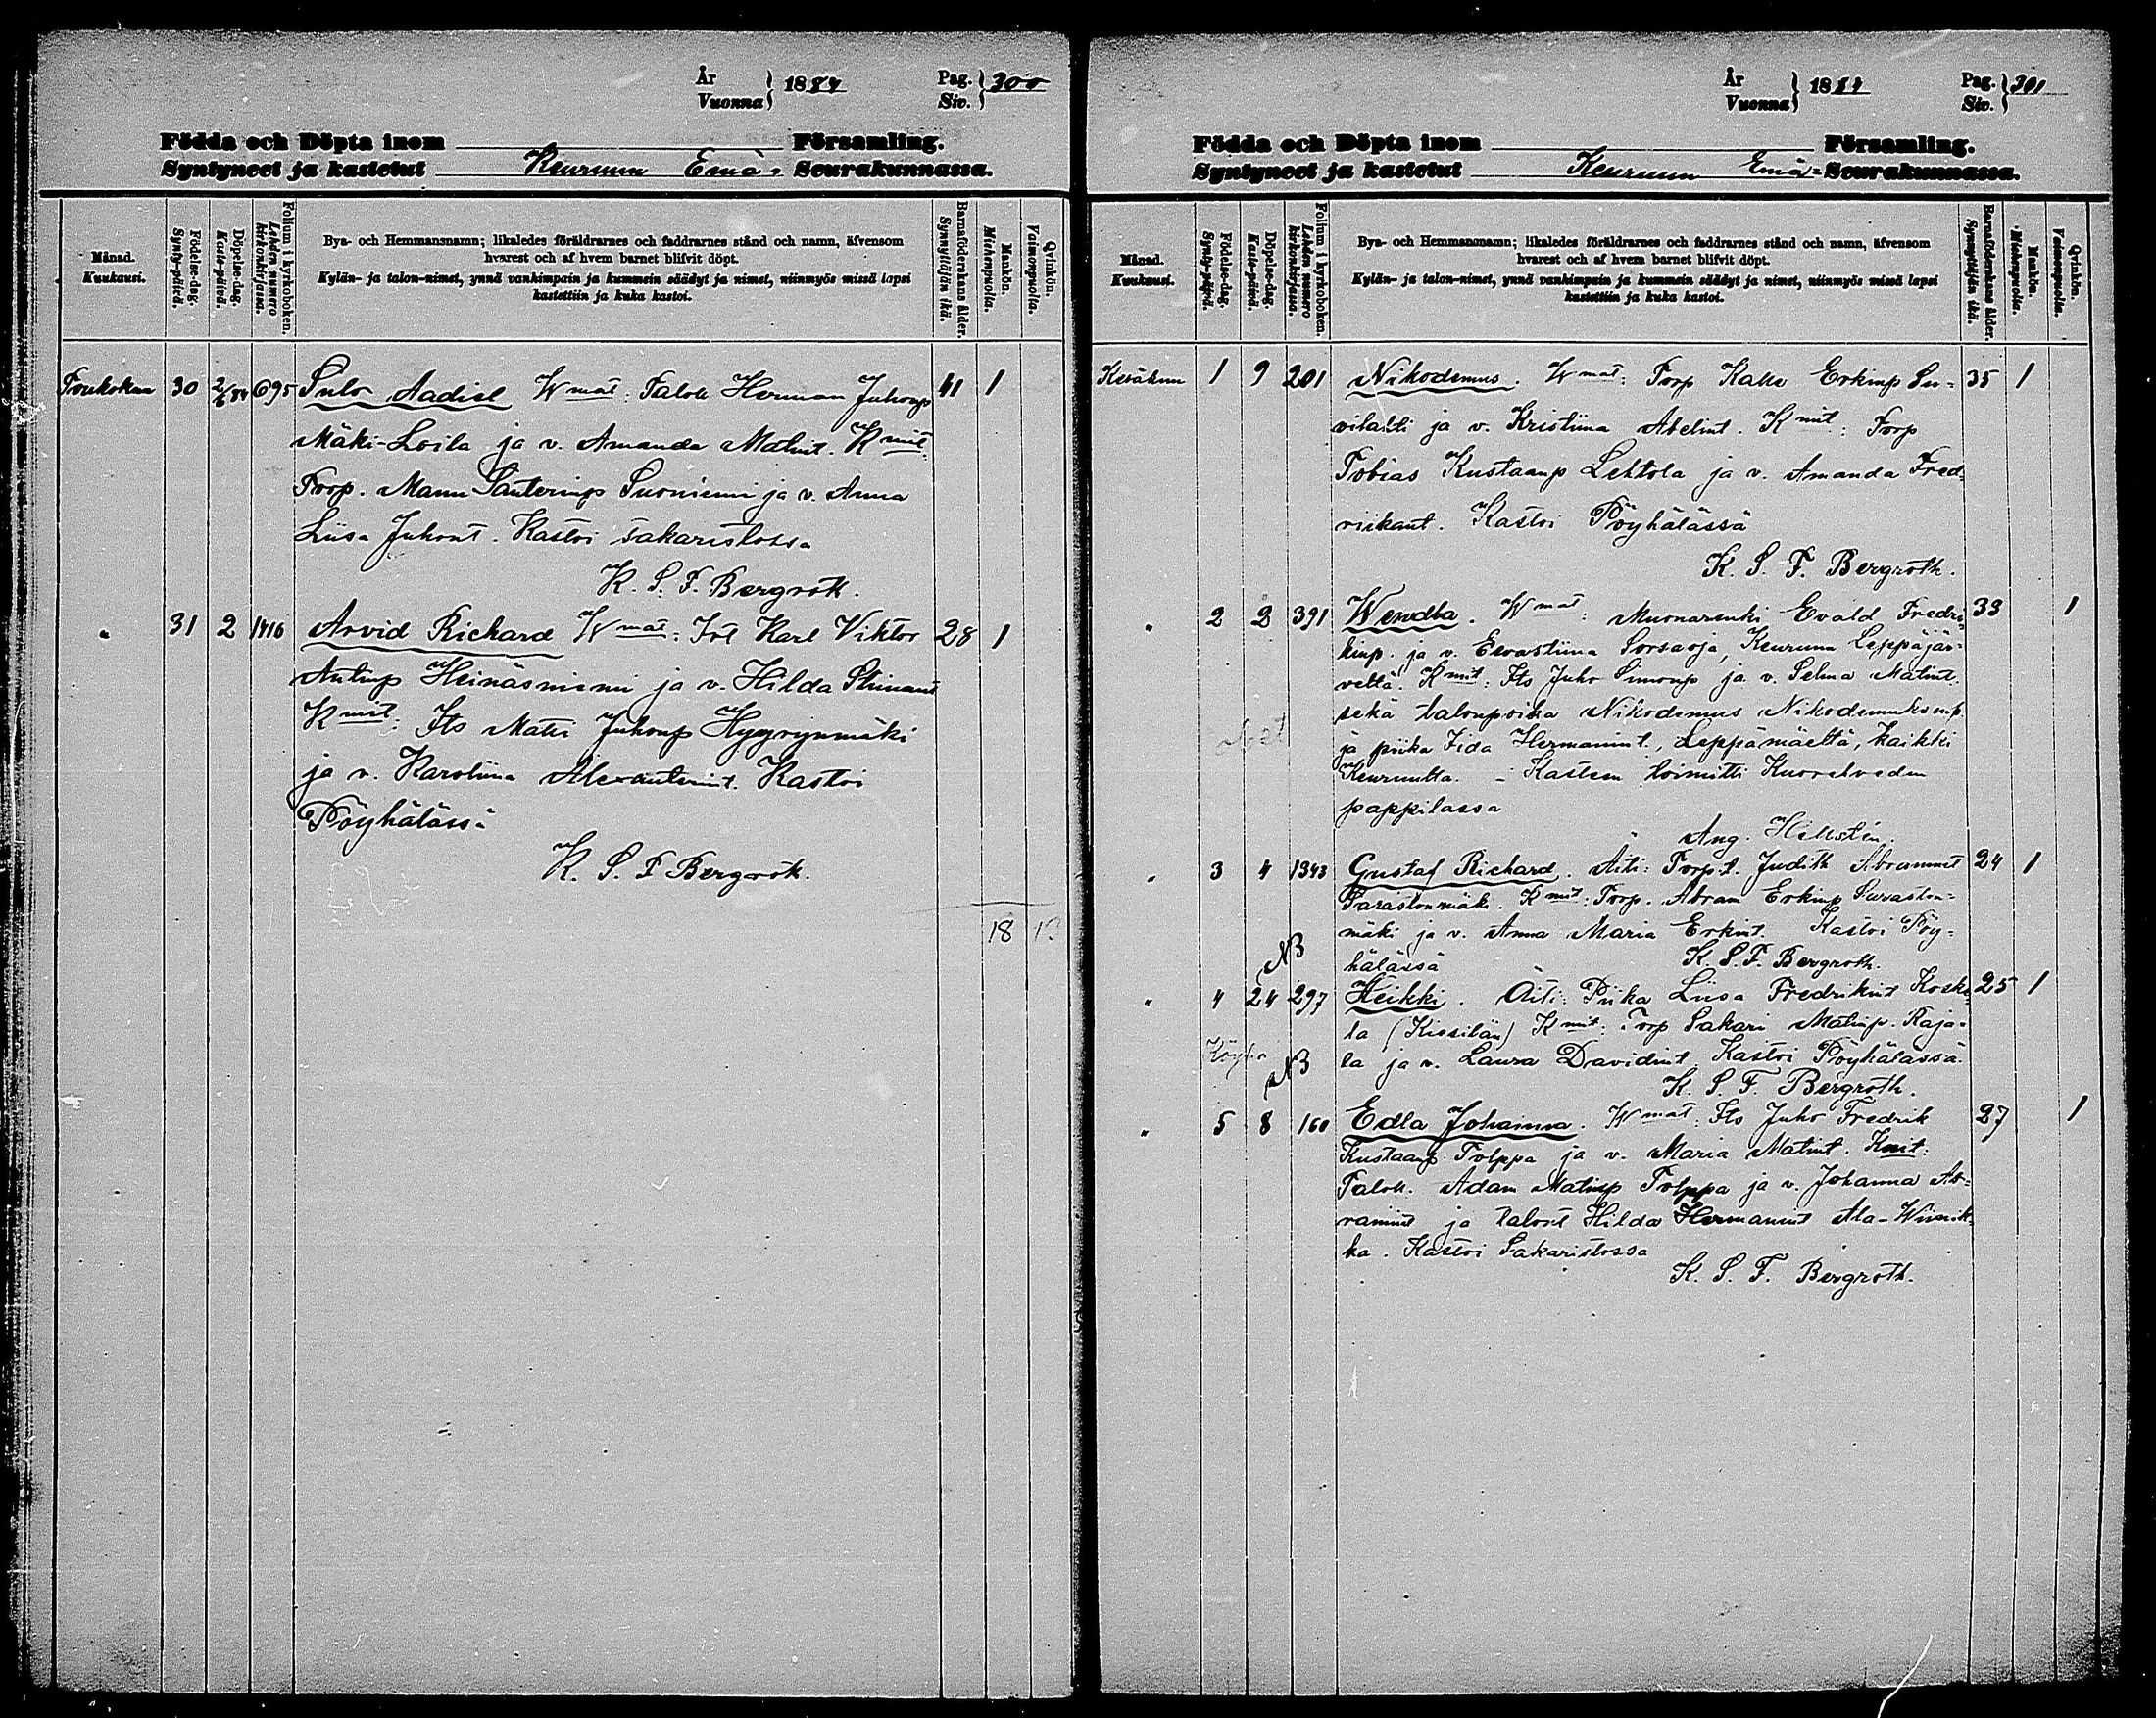 År
Vuonna } 1884 Pag.
Siv. } 300
Födda och Döpta inom Församling.
Syntyneet ja kastetut Keuruun Emä- Seurakunnassa.
Månad.
Kuukausi.
Födelse-dag.
Synty-päivä.
Döpelse-dag.
Kaste-päivä.
Folium i kyrkoboken.
Lehden numero
kirkonkirjassa.
Bya- och Hemmansnamn; likaledes föräldrarnes och faddrarnes stånd och namn, äfvensom
hvarest och af hvem barnet blifvit döpt.
Kylän- ja talon-nimet, ynnä vanhimpain ja kummein säädyt ja nimet, niinmyös missä lapsi
kastettiin ja kuka kastoi.
Barnaföderskans ålder.
Synnyttäjän ikä.
Mankön.
Miehenpuolia.
Qvinkön.
Vaimonpuolia.
Toukokuu 30 2/6 84 695 Sulo Aadiel Wmat: Talok Herman Juhonp 41 1
Mäki-Loila ja v. Amanda Matint. Kmit:
Torp. Manu Santerinp Suoniemi ja v. Anna
Liisa Juhont. Kastoi sakaristossa
K. S. F. Bergroth.
" 31 2 1416 Arvid Richard Wmat: Itl Karl Viktor 28 1
Antinp Heinäsniemi ja v. Hilda Stiinant
Kmit: Its Matti Juhonp Hyyrynmäki
ja v. Karoliina Alexanterint. Kastoi
Pöyhälässä
K. S. F Bergroth.
18
År
Vuonna } 1884 Pag.
Siv. } 301
Födda och Döpta inom Församling.
Syntyneet ja kastetut Keuruun Emä- Seurakunnassa.
Månad.
Kuukausi.
Födelse-dag.
Synty-päivä.
Döpelse-dag.
Kaste-päivä.
Folium i kyrkoboken.
Lehden numero
kirkonkirjassa.
Bya- och Hemmansnamn; likaledes föräldrarnes och faddrarnes stånd och namn, äfvensom
hvarest och af hvem barnet blifvit döpt.
Kylän- ja talon-nimet, ynnä vanhimpain ja kummein säädyt ja nimet, niinmyös missä lapsi
kastettiin ja kuka kastoi.
Barnaföderskans ålder.
Synnyttäjän ikä.
Mankön.
Miehenpuolia.
Qvinkön.
Vaimonpuolia.
Kesäkuu 1 9 201 Nikodemus. Wmat: Torp Kalle Erkinp Su- 35 1
vilahti ja v. Kristiina Abelint. Kmit: Torp
Tobias Kustaanp Lehtola ja v. Amanda Fred-
riikant. Kastoi Pöyhälässä
K. S. F. Bergroth.
" 2 2 391 Wendla. Wmat: Muonarenki Evald Fredri- 33 1
kinp. ja v. Eevastiina Sorsaoja, Keuruun Leppäjär-
veltä. Kmit: Its Juho Simonp ja v. Selma Matint.
sekä talonpoika Nikodemus Nikodemuksenp.
ja piika Iida Hermannint., Leppämäeltä, kaikki
Keuruulta. - Kasteen toimitti Kuoreveden
pappilassa
Aug. Hellstén.
" 3 4 1343 Gustaf Richard. Äiti: Torp.t. Judith Abramint 24 1
Sarastonmäki. Kmit: Torp. Abram Erkinp Saraston-
mäki ja v. Anna Maria Erkint. Kastoi Pöy-
NB hälässä K. S. F. Bergroth.
" 4 24 297 Heikki. Äiti: Piika Liisa Fredrikint Koske- 25 1
la (Kiesilän) Kmit: Torp Sakari Matinp. Raja-
NB la ja v. Laura Davidint. Kastoi Pöyhälässä.
K. S. F. Bergroth.
" 5 8 160 Edla Johanna. Wmat: Its Juho Fredrik 27 1
Kustaanp Tolppa ja v. Maria Matint. Kmit:
Talok. Adam Matinp Tolppa ja v. Johanna Ab-
ramint ja talont Hilda Hermannint Ala-Wiinik-
ka. Kastoi Sakaristossa
K. S. F. Bergroth.